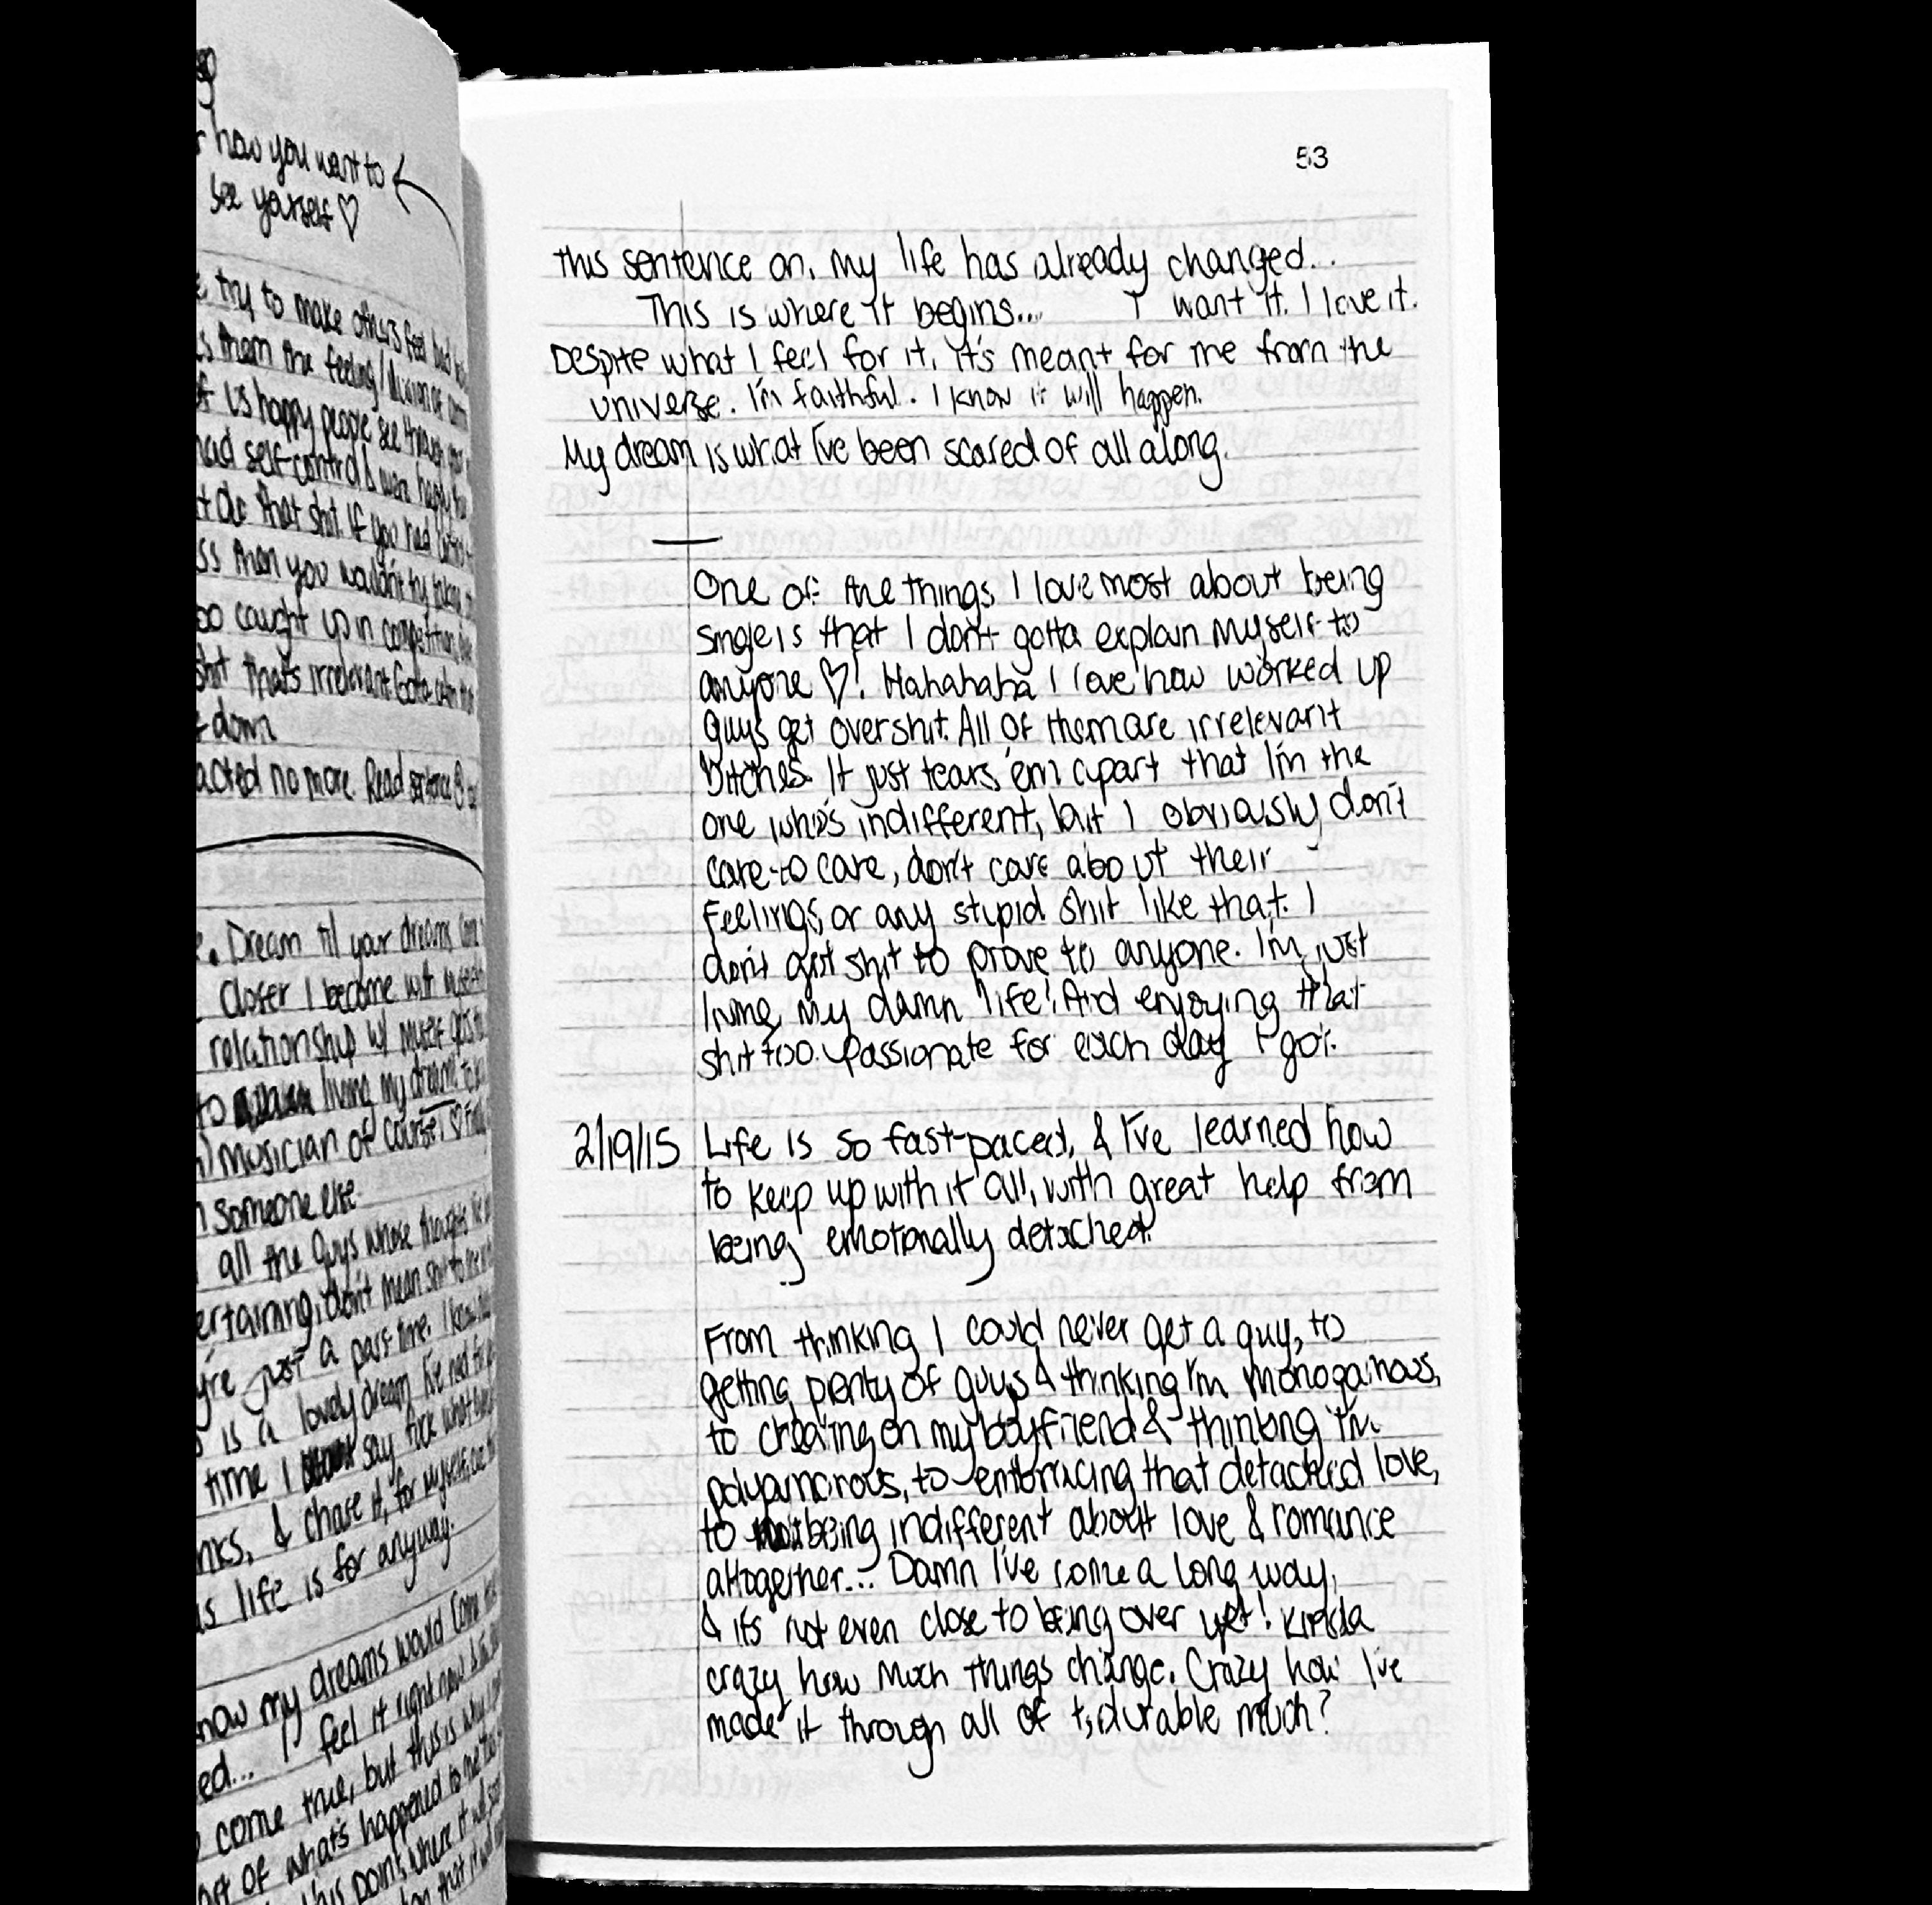 how you want to
see yourself ♡
try to make others feel bad
them the feeling/illusion of
of us happy people see through your
had self-control & were happy
that shit. If you had
then you wouldn't try
caught up in competition
shit that's irrelevant. Gotta
down
no more. Read sentence
Dream til your dreams
closer I become with
relationship w/ music
to living my dream
musician of course! ♡
someone else
all the guys whose thoughts
don't mean shit to
just a past time. I
is a lovely dream. I've
time I say fuck what
& chase it, for myself,
life is for anyway.
my dreams would come
I feel it right now &
come true, but this is
of what's happened to me
this point, where it
53
this sentence on. My life has already changed...
This is where it begins... I want it. I love it.
Despite what I feel for it, it's meant for me from the
universe. I'm faithful. I know it will happen.
My dream is what I've been scared of all along.
One of the things I love most about being
single is that I don't gotta explain myself to
anyone ♡! Hahahaha I love how worked up
guys get over shit. All of them are irrelevant
bitches. It just tears 'em apart that I'm the
one who's indifferent, but I obviously don't
care to care, don't care about their
feelings, or any stupid shit like that. I
don't got shit to prove to anyone. I'm just
living my damn life! And enjoying that
shit too. Passionate for each day I got.
2/19/15 Life is so fast-paced, & I've learned how
to keep up with it all, with great help from
being emotionally detached.
From thinking I could never get a guy, to
getting plenty of guys & thinking I'm monogamous,
to cheating on my boyfriend & thinking I'm
polyamorous, to embracing that detached love,
to being indifferent about love & romance
altogether... Damn I've come a long way,
& it's not even close to being over yet! Kinda
crazy how much things change. Crazy how I've
made it through all of it, durable much?